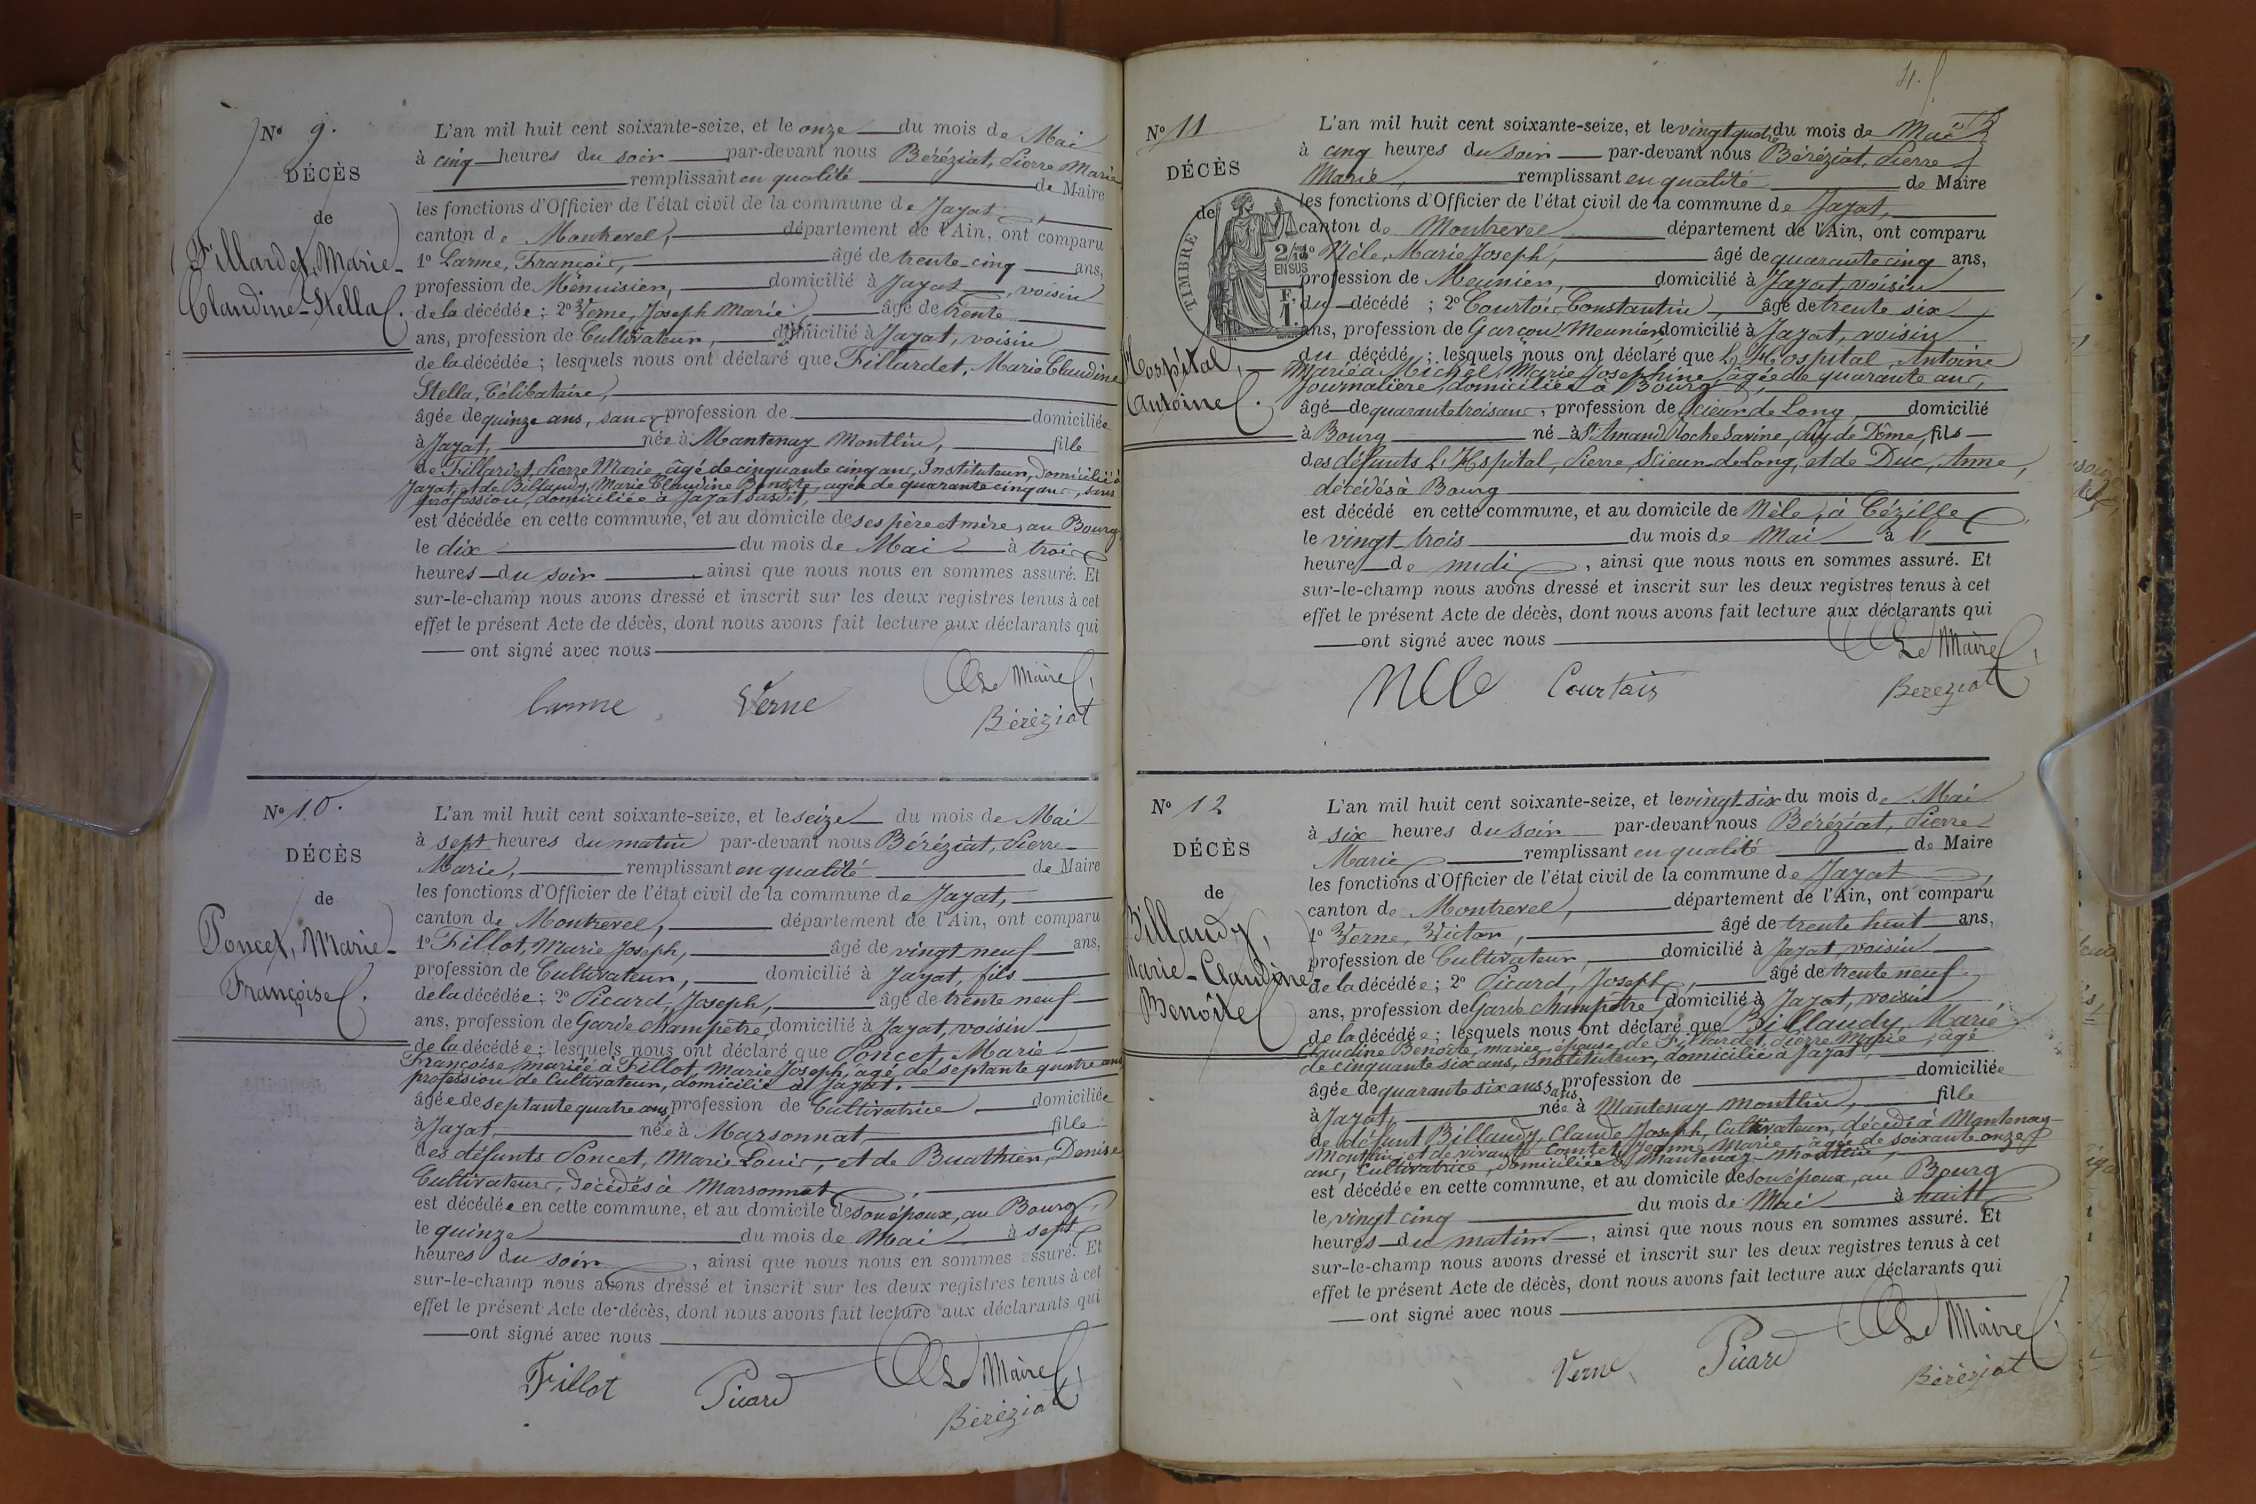 N° 9.
DÉCÈS
de
Fillardet, Marie-
Claudine-Stella
L'an mil huit cent soixante-seize, et le onze du mois de Mai
à cinq heures du soir par-devant nous Béréziat, Pierre Marie
remplissant en qualité de Maire
les fonctions d'Officier de l'état civil de la commune de Jayat
canton de Montrevel, département de l'Ain, ont comparu
1° Larme, François, âgé de trente-cinq ans,
profession de Ménuisier, domicilié à Jayat, voisin
de la décédée; 2° Verne, Joseph Marie, âgé de trente
ans, profession de Cultivateur, domicilié à Jayat, voisin
de la décédée; lesquels nous ont déclaré que Fillardet, Marie Claudine
Stella, Célibataire,
âgée de quinze ans, sans profession de domiciliée
à Jayat, née à Mantenay Montlin, fille
de Fillardet, Pierre Marie, âgé de cinquante cinq ans, Instituteur, domicilié à
Jayat, et de Billaudy, Marie Claudine Benoîte, âgée de quarante cinq ans, sans
profession, domiciliée à Jayat susdit,
est décédée en cette commune, et au domicile de ses père et mère, au Bourg
le dix du mois de Mai à trois
heures du soir ainsi que nous nous en sommes assuré. Et
sur-le-champ nous avons dressé et inscrit sur les deux registres tenus à cet
effet le présent Acte de décès, dont nous avons fait lecture aux déclarants qui
ont signé avec nous
Le Maire,
Larme Verne
Béréziat
N° 10.
DÉCÈS
de
Poncet, Marie-
Françoise
L'an mil huit cent soixante-seize, et le seize du mois de Mai
à sept heures du matin par-devant nous Béréziat, Pierre
Marie, remplissant en qualité de Maire
les fonctions d'Officier de l'état civil de la commune de Jayat,
canton de Montrevel, département de l'Ain, ont comparu
1° Fillot, Marie Joseph, âgé de vingt neuf ans,
profession de Cultivateur, domicilié à Jayat, fils
de la décédée; 2° Picard, Joseph, âgé de trente neuf
ans, profession de Garde champêtre, domicilié à Jayat, voisin
de la décédée; lesquels nous ont déclaré que Poncet, Marie
Françoise, mariée à Fillot, Marie Joseph, âgé de septante quatre ans
profession de Cultivateur, domicilié à Jayat.
âgée de septante quatre ans, profession de Cultivatrice domiciliée
à Jayat, née à Marsonnat, fille
des défunts Poncet, Marie Louis, et de Buathier, Denise
Cultivateurs, décédés à Marsonnat,
est décédée en cette commune, et au domicile de son époux, au Bourg,
le quinze du mois de Mai à sept
heures du soir, ainsi que nous nous en sommes assuré. Et
sur-le-champ nous avons dressé et inscrit sur les deux registres tenus à cet
effet le présent Acte de décès, dont nous avons fait lecture aux déclarants qui
ont signé avec nous
Le Maire,
Fillot Picard
Béréziat
N° 11
DÉCÈS
de
TIMBRE
2/10
EN SUS
F.
1.
L'Hospital,
Antoine
L'an mil huit cent soixante-seize, et le vingt quatre du mois de Mai
à cinq heures du soir par-devant nous Béréziat, Pierre
Marie, remplissant en qualité de Maire
les fonctions d'Officier de l'état civil de la commune de Jayat,
canton de Montrevel département de l'Ain, ont comparu
1° Nèle, Marie Joseph, âgé de quarante cinq ans,
profession de Meunier, domicilié à Jayat, voisin
du décédé; 2° Courtois, Constantin, âgé de trente six
ans, profession de Garçon Meunier, domicilié à Jayat, voisin
du décédé; lesquels nous ont déclaré que L'Hospital, Antoine
Marié à Michel, Marie Josephine, âgée de quarante ans,
journalière, domiciliée à Bourg,
âgé de quarante trois ans, profession de Scieur de Long, domicilié
à Bourg né à St Amand Roche Savine, Puy de Dôme, fils
des défunts L'Hspital, Pierre, Scieur de Long, et de Duc, Anne,
décédés à Bourg
est décédé en cette commune, et au domicile de Nèle, à Cézille
le vingt trois du mois de Mai à l'
heure de midi, ainsi que nous nous en sommes assuré. Et
sur-le-champ nous avons dressé et inscrit sur les deux registres tenus à cet
effet le présent Acte de décès, dont nous avons fait lecture aux déclarants qui
ont signé avec nous
Le Maire,
Courtois
Béréziat
N° 12
DÉCÈS
de
Billaudy,
Marie-Claudine-
Benoîte
L'an mil huit cent soixante-seize, et le vingt six du mois de Mai
à six heures du soir par-devant nous Béréziat, Pierre
Marie remplissant en qualité de Maire
les fonctions d'Officier de l'état civil de la commune de Jayat,
canton de Montrevel, département de l'Ain, ont comparu
1° Verne, Victor, âgé de trente huit ans,
profession de Cultivateur, domicilié à Jayat, voisin
de la décédée; 2° Picard, Joseph, âgé de trente neuf
ans, profession de Garde champêtre, domicilié à Jayat, voisin
de la décédée; lesquels nous ont déclaré que Billaudy, Marie
Claudine Benoîte, mariée, épouse de Fillardet, Pierre Marie, âgé
de cinquante six ans, Instituteur, domicilié à Jayat,
âgée de quarante six ans, sans profession de domiciliée
à Jayat, née à Mantenay Montlin, fille
de défunt Billaudy, Claude Joseph, Cultivateur, décédé à Mantenay-
Montlin, et de vivante Comtet, Jeanne Marie, âgée de soixante onze
ans, Cultivatrice, domiciliée à Mantenay-Montlin,
est décédée en cette commune, et au domicile de son époux, au Bourg
le vingt cinq du mois de Mai à huit
heures du matin, ainsi que nous nous en sommes assuré. Et
sur-le-champ nous avons dressé et inscrit sur les deux registres tenus à cet
effet le présent Acte de décès, dont nous avons fait lecture aux déclarants qui
ont signé avec nous
Le Maire,
Verne Picard
Béréziat